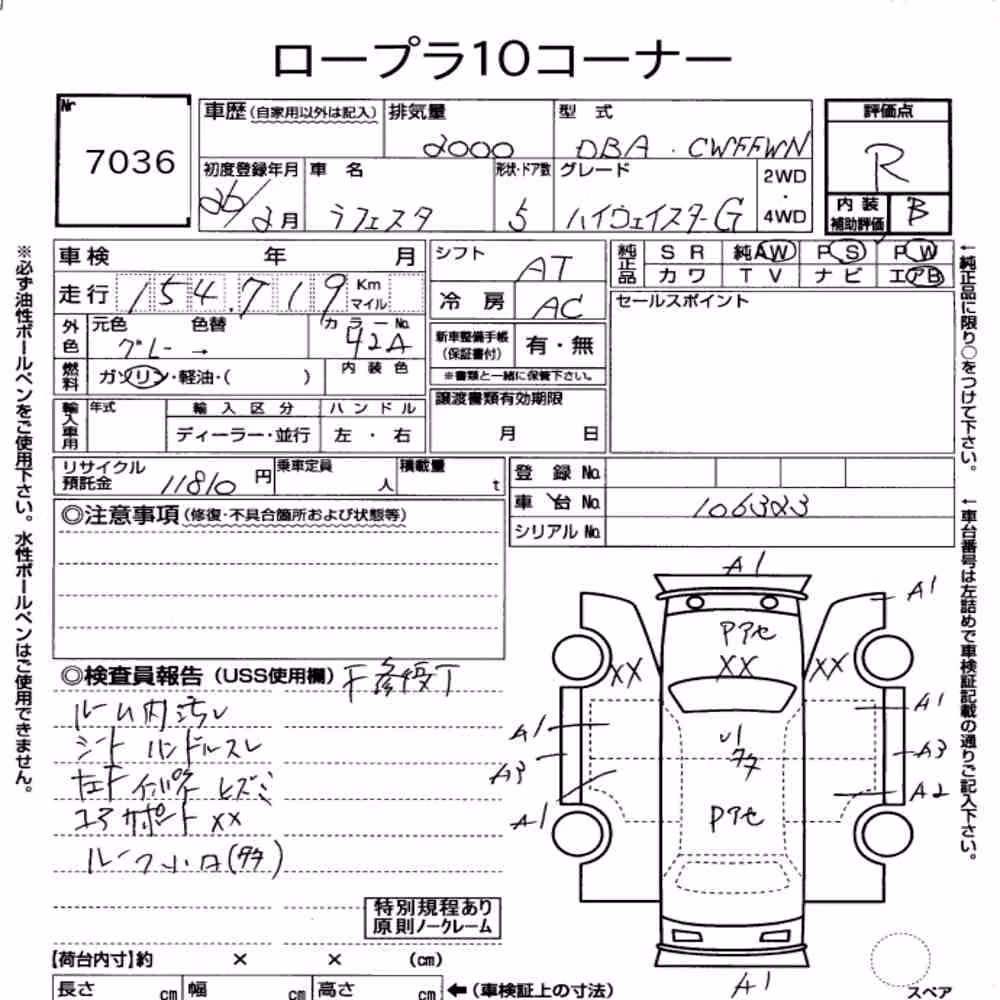 ロープラ10コーナー
Nr
7036
車歴(自家用以外は記入)
排気量
2000
型 式
DBA・CWFFWN
評価点
R
初度登録年月
26/2月
車 名
ラフェスタ
形状・ドア数
5
グレード
ハイウェイスターG
2WD
・
4WD
内 装
補助評価
B
車検 年 月
走行 154,719 Km
マイル
外色
元色 色替
グレー →
カラーNo.
42A
燃料
ガソリン・軽油・( )
内装色
輸入車用
年式
輸入区分
ハンドル
ディーラー・並行
左 ・ 右
シフト
AT
冷 房
AC
新車整備手帳
(保証書付)
有・無
※書類と一緒に保管下さい。
譲渡書類有効期限
月 日
純正品
S R
純AW
P S
P W
カワ
T V
ナビ
エアB
セールスポイント
リサイクル
預託金
11810 円
乗車定員
人
積載量
t
登 録 No.
車 台 No.
106323
シリアル No.
◎注意事項(修復・不具合箇所および状態等)
◎検査員報告(USS使用欄)
ルーム内汚レ
シート ハンドルスレ
コアサポートXX
特別規程あり
原則ノークレーム
【荷台内寸】約 × × (cm)
長さ cm
幅 cm
高さ cm
←(車検証上の寸法)
スペア
A1
A1
Pアセ
XX
XX
XX
A1
A1
U1
A3
A3
A2
A1
Pアセ
A1
※必ず油性ボールペンをご使用下さい。水性ボールペンはご使用できません。
←純正品に限り○をつけて下さい。
←車台番号は左詰めで車検証記載の通りご記入下さい。